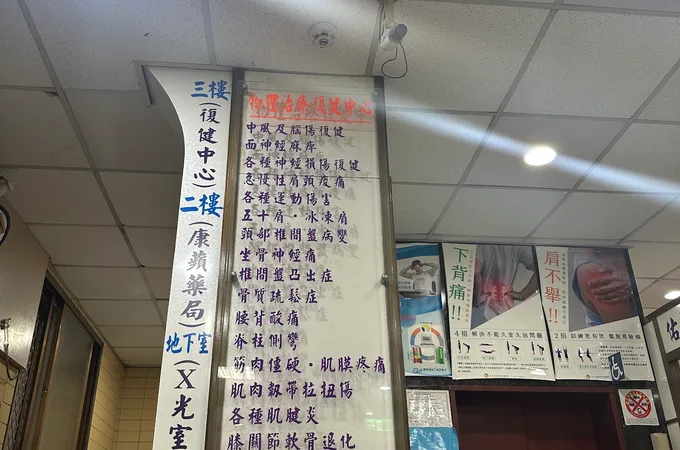 三樓
(復健中心)
二樓
(康蘋藥局)
地下室
(X光室
物理治療復健中心
中風及腦傷復健
面神經麻痹
各種神經損傷復健
急慢性肩頸痠痛
各種運動傷害
五十肩·冰凍肩
頸部椎間盤病變
坐骨神經痛
椎間盤凸出症
骨質疏鬆症
腰背酸痛
脊柱側彎
筋肉僵硬·肌膜疼痛
肌肉韌帶拉扭傷
各種肌腱炎
膝關節軟骨退化
下背痛!!
4招 解決不能久坐久站問題
肩不舉!!
2招
佑